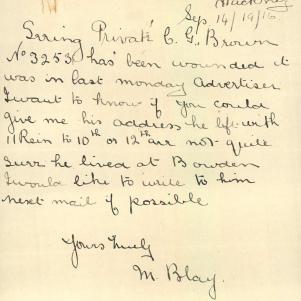 Hackney
Sep 14/19/16
Srring Private C. G. Brown
No 3253 has been wounded it
was in last monday Advertiser
I want to know if you could
give me his address he left with
11 Rein to 10th or 12th arr not quite
surr he lived at Bowden
I would like to write to him
next mail if possible
Yours truly
M. Blay.